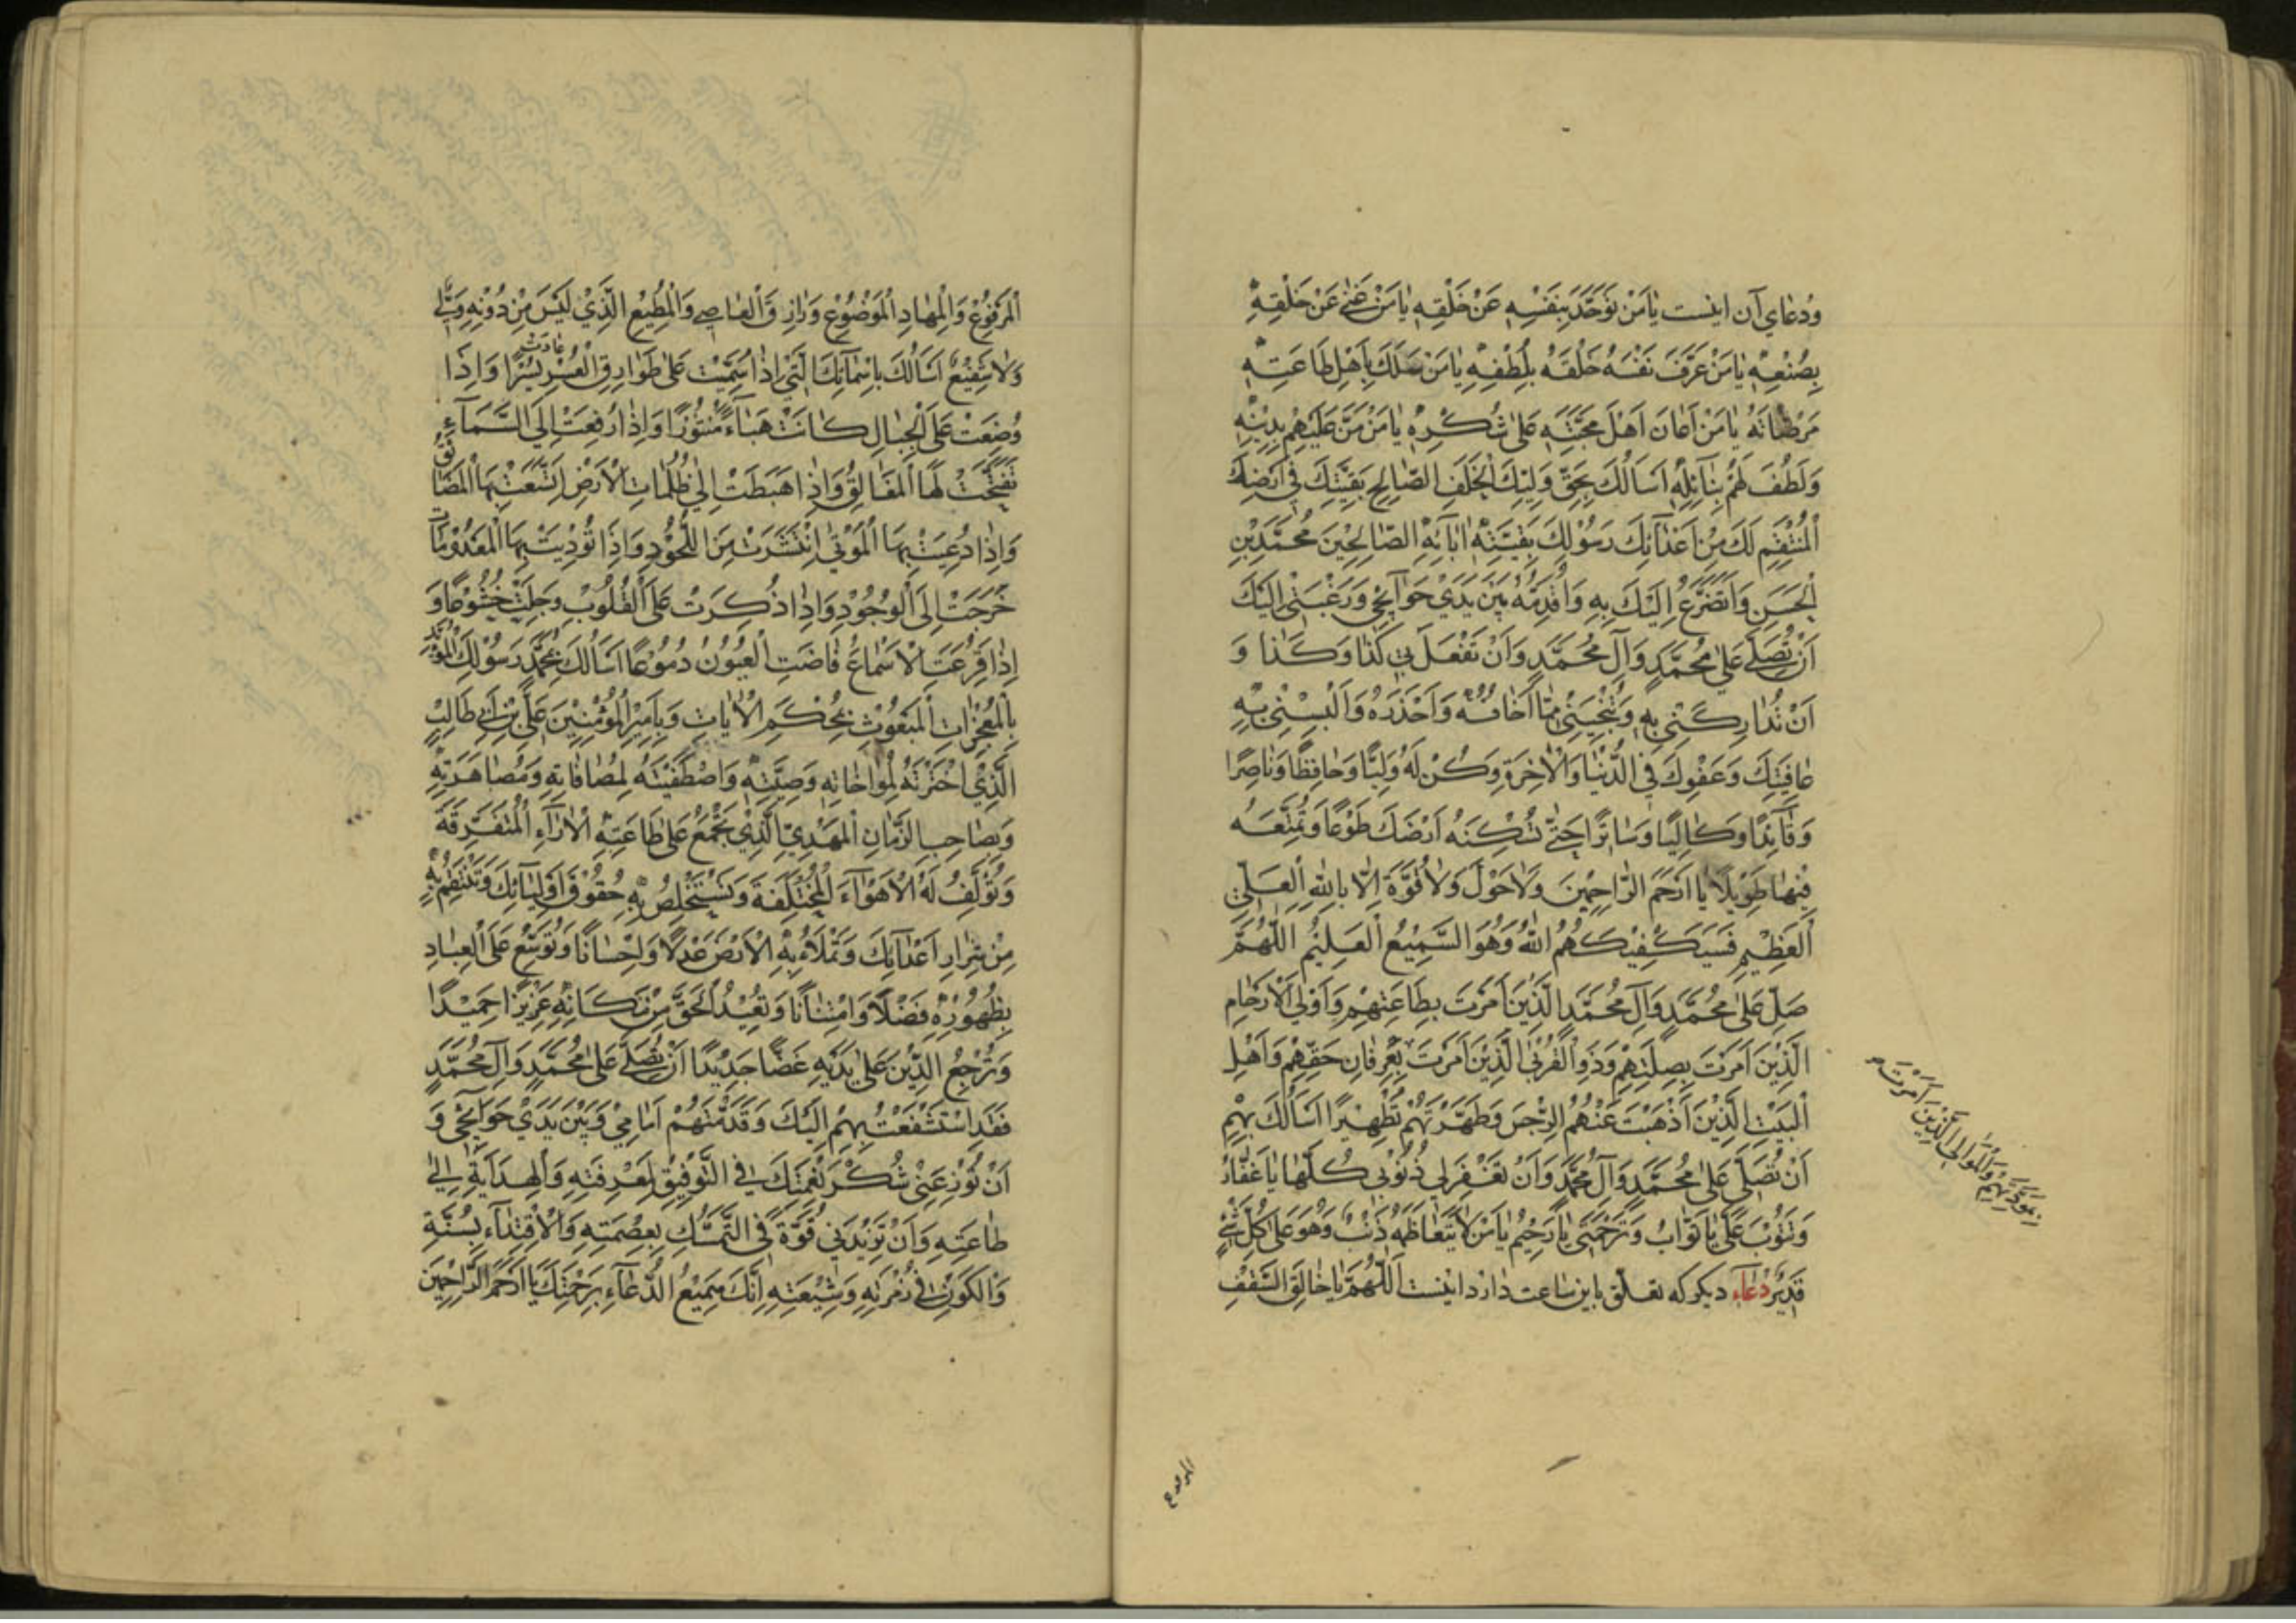 وَدُعٰاي آن اينست يٰا مَنْ تَوَحَّدَ بِنَفْسِهِ عَنْ خَلْقِهِ يٰا مَنْ غَنِيَ عَنْ خَلْقِهِ
بِصُنْعِهِ يٰا مَنْ عَرَّفَ نَفْسَهُ خَلْقَهُ بِلُطْفِهِ يٰا مَنْ سَلَكَ بِأَهْلِ طٰاعَتِهِ
مَرْضٰاتَهُ يٰا مَنْ أَعٰانَ اَهْلَ مَحَبَّتِهِ عَلىٰ شُكْرِهِ يٰا مَنْ مَنَّ عَلَيْهِمْ بِدِيْنِهِ
وَلَطُفَ لَهُمْ بِنٰآئِلِهِ اَسْاَلُكَ بِحَقِّ وَلِيِّكَ الْخَلَفِ الصّٰالِحِ بَقِيَّتِكَ فِي اَرْضِكَ
الْمُنْتَقِمِ لَكَ مِنْ اَعْدٰآئِكَ رَسُوْلِكَ بَقِيَّةِ اٰبٰآئِهِ الصّٰالِحِيْنَ مُحَمَّدِ بْنِ
الْحَسَنِ وَاَتَضَرَّعُ اِلَيْكَ بِهِ وَاُقَدِّمُهُ بَيْنَ يَدَيْ حَوٰآئِجِيْ وَرَغْبَتِيْ اِلَيْكَ
اَنْ تُصَلِّيَ عَلىٰ مُحَمَّدٍ وَآلِ مُحَمَّدٍ وَاَنْ تَفْعَلَ بِي كَذٰا وَكَذٰا وَ
اَنْ تُدٰارِكَنِيْ بِهِ وَتُنْجِيَنِيْ مِمّٰا اَخٰافُهُ وَاَحْذَرُهُ وَاَلْبِسْنِيْ بِهِ
عٰافِيَتَكَ وَعَفْوَكَ فِي الدُّنْيٰا وَالْاٰخِرَةِ وَكُنْ لَهُ وَلِيًّا وَحٰافِظًا وَنٰاصِرًا
وَقٰآئِدًا وَكٰالِيًا وَسٰاتِرًا حَتّٰى تُسْكِنَهُ اَرْضَكَ طَوْعًا وَتُمَتِّعَهُ
فِيْهٰا طَوِيْلًا يٰا اَرْحَمَ الرّٰاحِمِيْنَ وَلاٰ حَوْلَ وَلاٰ قُوَّةَ اِلّٰا بِاللّٰهِ الْعَلِيِّ
الْعَظِيْمِ فَسَيَكْفِيْكَهُمُ اللّٰهُ وَهُوَ السَّمِيْعُ الْعَلِيْمُ اَللّٰهُمَّ
صَلِّ عَلىٰ مُحَمَّدٍ وَآلِ مُحَمَّدٍ الَّذِيْنَ اَمَرْتَ بِطٰاعَتِهِمْ وَاُولِي الْاَرْحٰامِ
الَّذِيْنَ اَمَرْتَ بِصِلَتِهِمْ وَذَوِي الْقُرْبىٰ الَّذِيْنَ اَمَرْتَ بِعِرْفٰانِ حَقِّهِمْ وَاَهْلِ
بِمَوَدَّتِهِمْ وَالْمَوٰالِي الَّذِيْنَ اَمَرْتَ
الْبَيْتِ الَّذِيْنَ اَذْهَبْتَ عَنْهُمُ الرِّجْسَ وَطَهَّرْتَهُمْ تَطْهِيْرًا اَسْاَلُكَ بِهِمْ
اَنْ تُصَلِّيَ عَلىٰ مُحَمَّدٍ وَآلِ مُحَمَّدٍ وَاَنْ تَغْفِرَ لِي ذُنُوْبِي كُلَّهٰا يٰا غَفّٰارُ
وَتَتُوْبَ عَلَيَّ يٰا تَوّٰابُ وَتَرْحَمَنِي يٰا رَحِيْمُ يٰا مَنْ لاٰ يَتَعٰاظَمُهُ ذَنْبٌ وَهُوَ عَلىٰ كُلِّ شَيْءٍ
قَدِيْرٌ دُعٰاء ديكر كه تعلّق باين ساعت دٰارد اينست اَللّٰهُمَّ يٰا خٰالِقَ السَّقْفِ
المرفوع
الْمَرْفُوْعِ وَالْمِهٰادِ الْمَوْضُوْعِ وَرٰازِقَ الْعٰاصِي وَالْمُطِيْعِ الَّذِيْ لَيْسَ مِنْ دُوْنِهِ وَلِيٌّ
وَلاٰ شَفِيْعٌ اَسْاَلُكَ بِاَسْمٰآئِكَ الَّتِيْ اِذٰا سُمِّيَتْ عَلىٰ طَوٰارِقِ الْعُسْرِ عٰادَتْ يُسْرًا وَاِذَا
وُضِعَتْ عَلَى الْجِبٰالِ كٰانَتْ هَبٰآءً مَنْثُوْرًا وَاِذٰا رُفِعَتْ اِلَى السَّمٰآءِ
تَفَتَّحَتْ لَهَا الْمَغٰالِقُ وَاِذٰا هَبَطَتْ اِلىٰ ظُلُمٰاتِ الْاَرْضِ اِتَّسَعَتْ بِهَا الْمَضٰائِقُ
وَاِذٰا دُعِيَتْ بِهَا الْمَوْتىٰ اِنْتَشَرَتْ مِنَ اللُّحُوْدِ وَاِذٰا نُوْدِيَتْ بِهَا الْمَعْدُوْمٰاتُ
خَرَجَتْ اِلَى الْوُجُوْدِ وَاِذٰا ذُكِرَتْ عَلَى الْقُلُوْبِ وَجِلَتْ خُشُوْعًا وَ
اِذٰا قَرَعَتِ الْاَسْمٰاعَ فٰاضَتِ الْعُيُوْنُ دُمُوْعًا اَسْاَلُكَ بِمُحَمَّدٍ رَسُوْلِكَ الْمُؤَيَّدِ
بِالْمُعْجِزٰاتِ الْمَبْعُوْثِ بِمُحْكَمِ الْاٰيٰاتِ وَبِاَمِيْرِ الْمُؤْمِنِيْنَ عَلِيِّ بْنِ اَبِي طٰالِبٍ
الَّذِيْ اخْتَرْتَهُ لِمُوٰاخٰاتِهِ وَصِيَّتِهِ وَاصْطَفَيْتَهُ لِمُصٰافٰاتِهِ وَمُصٰاهَرَتِهِ
وَبِصٰاحِبِ الزَّمٰانِ الْمَهْدِيِّ الَّذِيْ تَجْمَعُ عَلىٰ طٰاعَتِهِ الْاٰرٰآءَ الْمُتَفَرِّقَةَ
وَتُؤَلِّفُ لَهُ الْاَهْوٰآءَ الْمُخْتَلِفَةَ وَتَسْتَخْلِصُ بِهِ حُقُوْقَ اَوْلِيٰآئِكَ وَتَنْتَقِمُ بِهِ
مِنْ شِرٰارِ اَعْدٰآئِكَ وَتَمْلَاُ بِهِ الْاَرْضَ عَدْلًا وَاِحْسٰانًا وَتُوَسِّعُ عَلَى الْعِبٰادِ
بِظُهُوْرِهِ فَضْلًا وَامْتِنٰانًا وَتُعِيْدُ الْحَقَّ مِنْ مَكٰانِهِ عَزِيْزًا حَمِيْدًا
وَتُرْجِعُ الدِّيْنَ عَلىٰ يَدَيْهِ غَضًّا جَدِيْدًا اَنْ تُصَلِّيَ عَلىٰ مُحَمَّدٍ وَآلِ مُحَمَّدٍ
فَقَدِ اسْتَشْفَعْتُ بِهِمْ اِلَيْكَ وَقَدَّمْتُهُمْ اَمٰامِيْ وَبَيْنَ يَدَيْ حَوٰآئِجِيْ وَ
اَنْ تُوْزِعَنِيْ شُكْرَ نِعْمَتِكَ فِي التَّوْفِيْقِ لِمَعْرِفَتِهِ وَالْهِدٰايَةِ اِلىٰ
طٰاعَتِهِ وَاَنْ تَزِيْدَنِي قُوَّةً فِي التَّمَسُّكِ بِعِصْمَتِهِ وَالْاِقْتِدٰآءِ بِسُنَّتِهِ
وَالْكَوْنِ فِي زُمْرَتِهِ وَشِيْعَتِهِ اِنَّكَ سَمِيْعُ الدُّعٰآءِ بِرَحْمَتِكَ يٰا اَرْحَمَ الرّٰاحِمِيْنَ